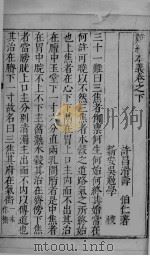 難經本義卷之下
許昌滑壽 伯仁著
新安吳勉學 校
三十一難曰三焦者何稟何生何始何終其治常在
何許可曉以不然三焦者水穀之道路氣之所終始
也上焦者在心下下膈在胃上口主內而不出其治
在膻中玉堂下一寸六分直兩乳間陷者是中焦者
在胃中脘不上不下主腐熟水穀其治在臍傍下焦
者當膀胱上口主分別清濁主出而不內以傳導也
其治在臍下一寸故名曰三焦其府在氣街